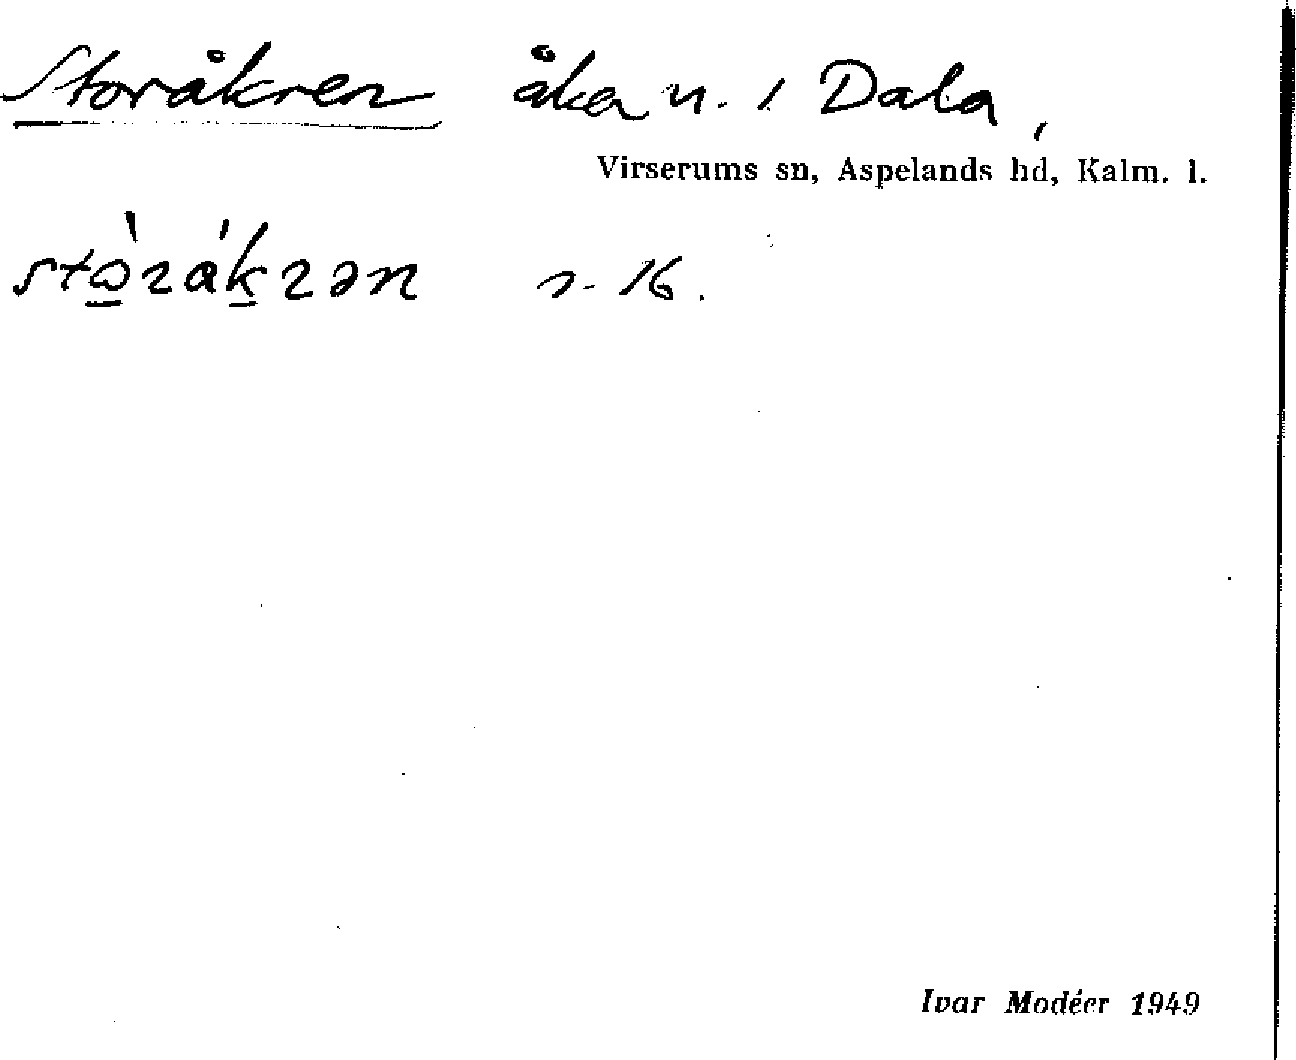 Storåkren åker n. 1 Dala,
Virserums sn, Aspelands hd, Kalm. l.
n. 16.
Ivar Modéer 1949